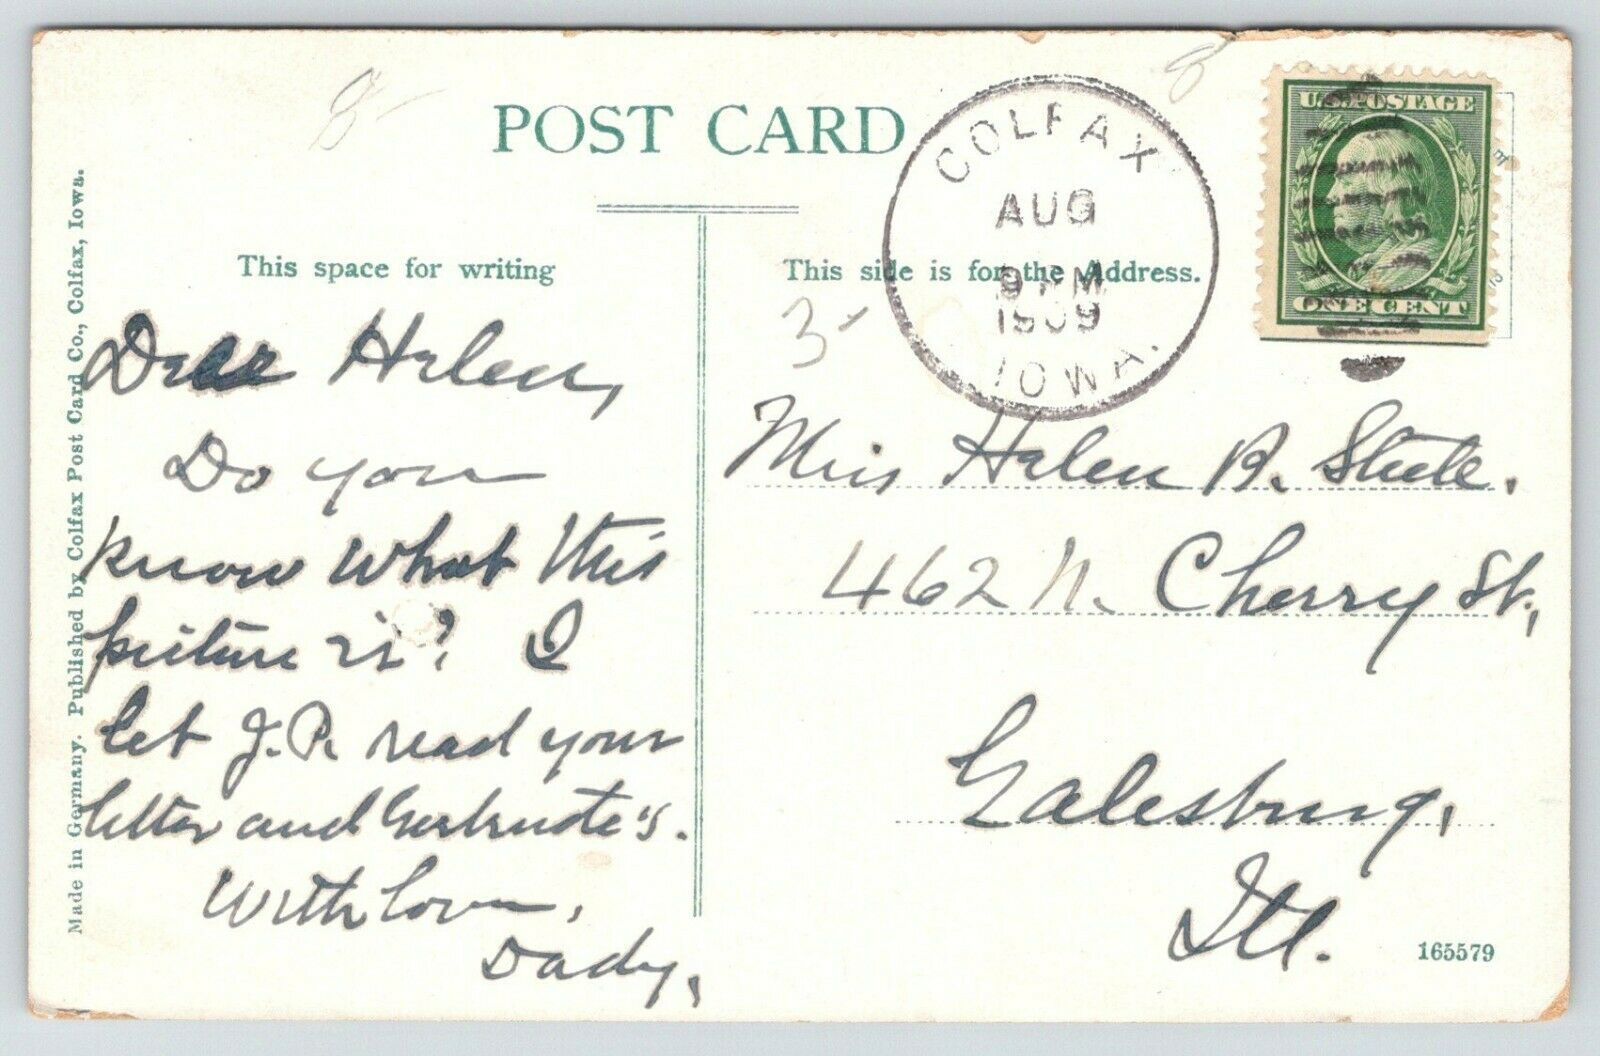 POST CARD
This space for writing
This side is for the Address.
COLFAX
AUG
9 PM
1909
IOWA.
U.S. POSTAGE
ONE CENT
3-
Dear Helen,
Do you
know what this
picture is? I
let J.P. read your
letter and Gertrude's.
With love,
Dady,
Miss Helen B. Steele.
462 N. Cherry St.,
Galesburg,
Ill.
165579
Made in Germany. Published by Colfax Post Card Co., Colfax, Iowa.